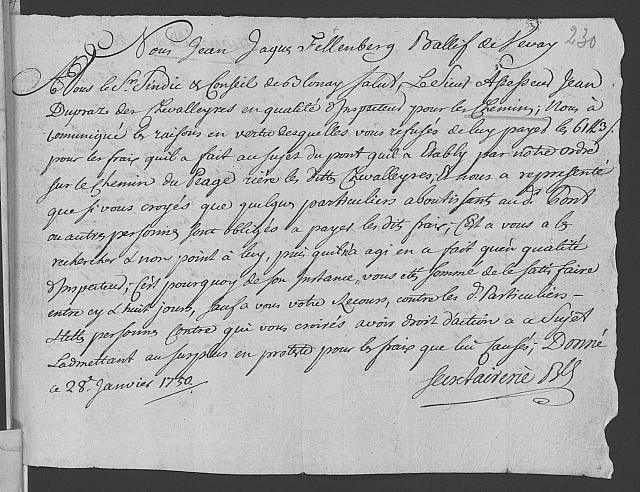 230
Nous Jean Jaques Fellenberg Ballif de Vevay
A Vous le Sr. Sindic & Conseil de Blonay Salut, Le Sieur Assesseur Jean
Dupraz des Chevalleyres en qualité d'Inspecteur pour les Chemins; Nous à
comuniqué les raisons en vertu desquelles vous refusés de luy payer les
pour les frais quil a fait au sujet du pont quil a Etably par nôtre ordre
sur le Chemin du Peage riere les dittes Chevalleyres, Et nous a representé
que si vous croyés que quelques particuliers aboutissants au d. Pont
ou autres personnes sont obligés a payer les dits frais; C'est a vous a les
rechercher & non point à luy, puis quil n'a agi en ce fait qu'en qualité
d'Inspecteur; C'est pourquoy de son Instance, vous etes sommé de le satisfaire
entre cy & huit jours, sauf a vous votre Recours, contre les d. Particuliers
& telles personnes Contre qui vous croirés avoir droit d'action a ce Sujet
Ladmettant au surplus en proteste pour les frais que lui Causés; Donné
ce 28e. Janvier 1730.
Secretairerie Bll